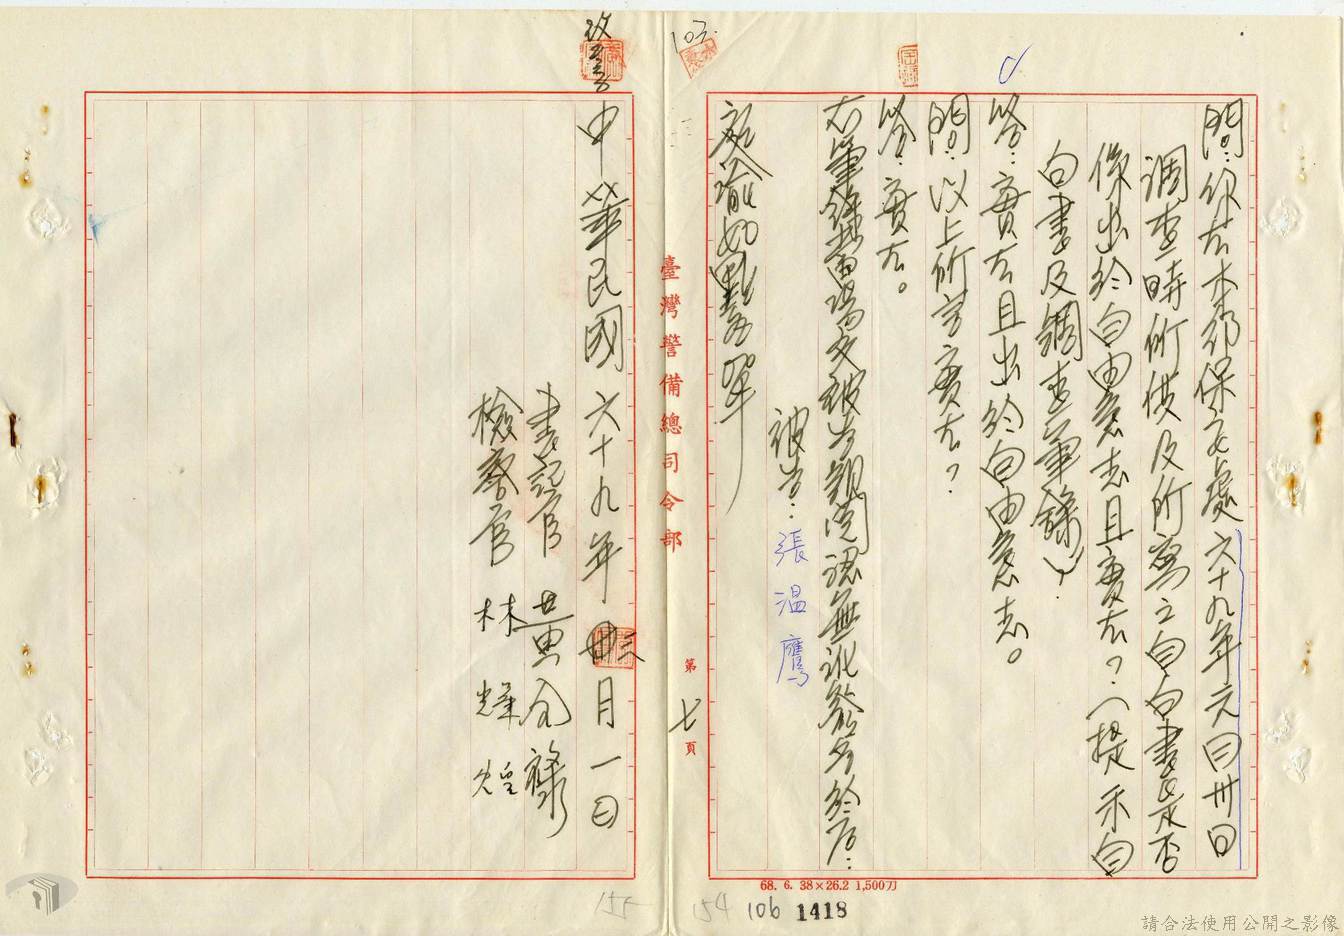 問：你在本部保安處六十九年元月卅日
調查時所供及所寫之自白書是否
係出於自由意志且實在？（提示自
白書及調查筆錄）
答：實在且出於自由意志。
問：以上所言實在？
答：實在。
右筆錄當場交被告親閱認無訛簽名於后：
被告：張温鷹
庭諭如點名單
臺灣警備總司令部
第七頁
中華民國六十九年三月一日
書記官 黃全祿
檢察官 林輝煌
68. 6. 38×26.2 1,500刀
155
154
106
1418
請合法使用公開之影像